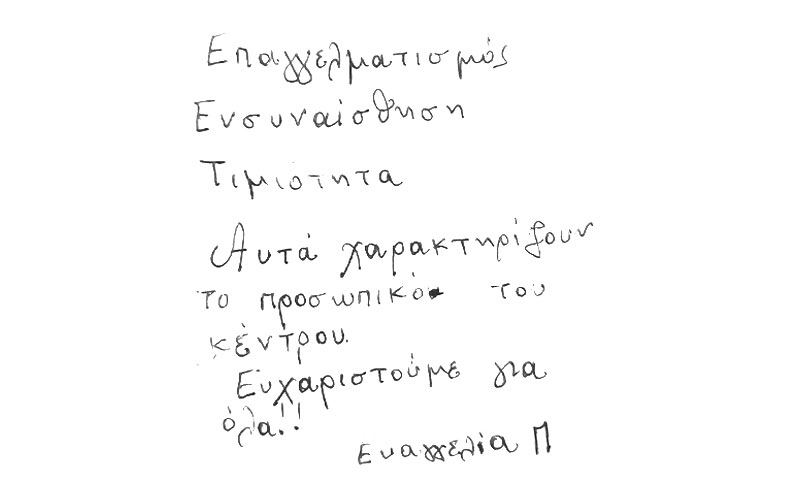 Επαγγελματισμός
Ενσυναίσθηση
Τιμιότητα
Αυτά χαρακτηρίζουν
το προσωπικό του
κέντρου.
Ευχαριστούμε για
όλα!!
Ευαγγελία Π